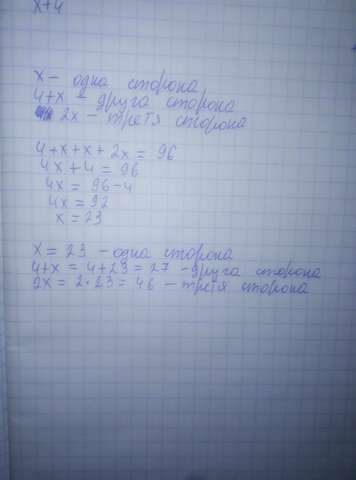 x+4
x - одна сторона
4+x - друга сторона
2x - третя сторона
4+x+x+2x = 96
4x+4 = 96
4x = 96-4
4x = 92
x = 23
x = 23 - одна сторона
4+x = 4+23 = 27 - друга сторона
2x = 2·23 = 46 - третя сторона